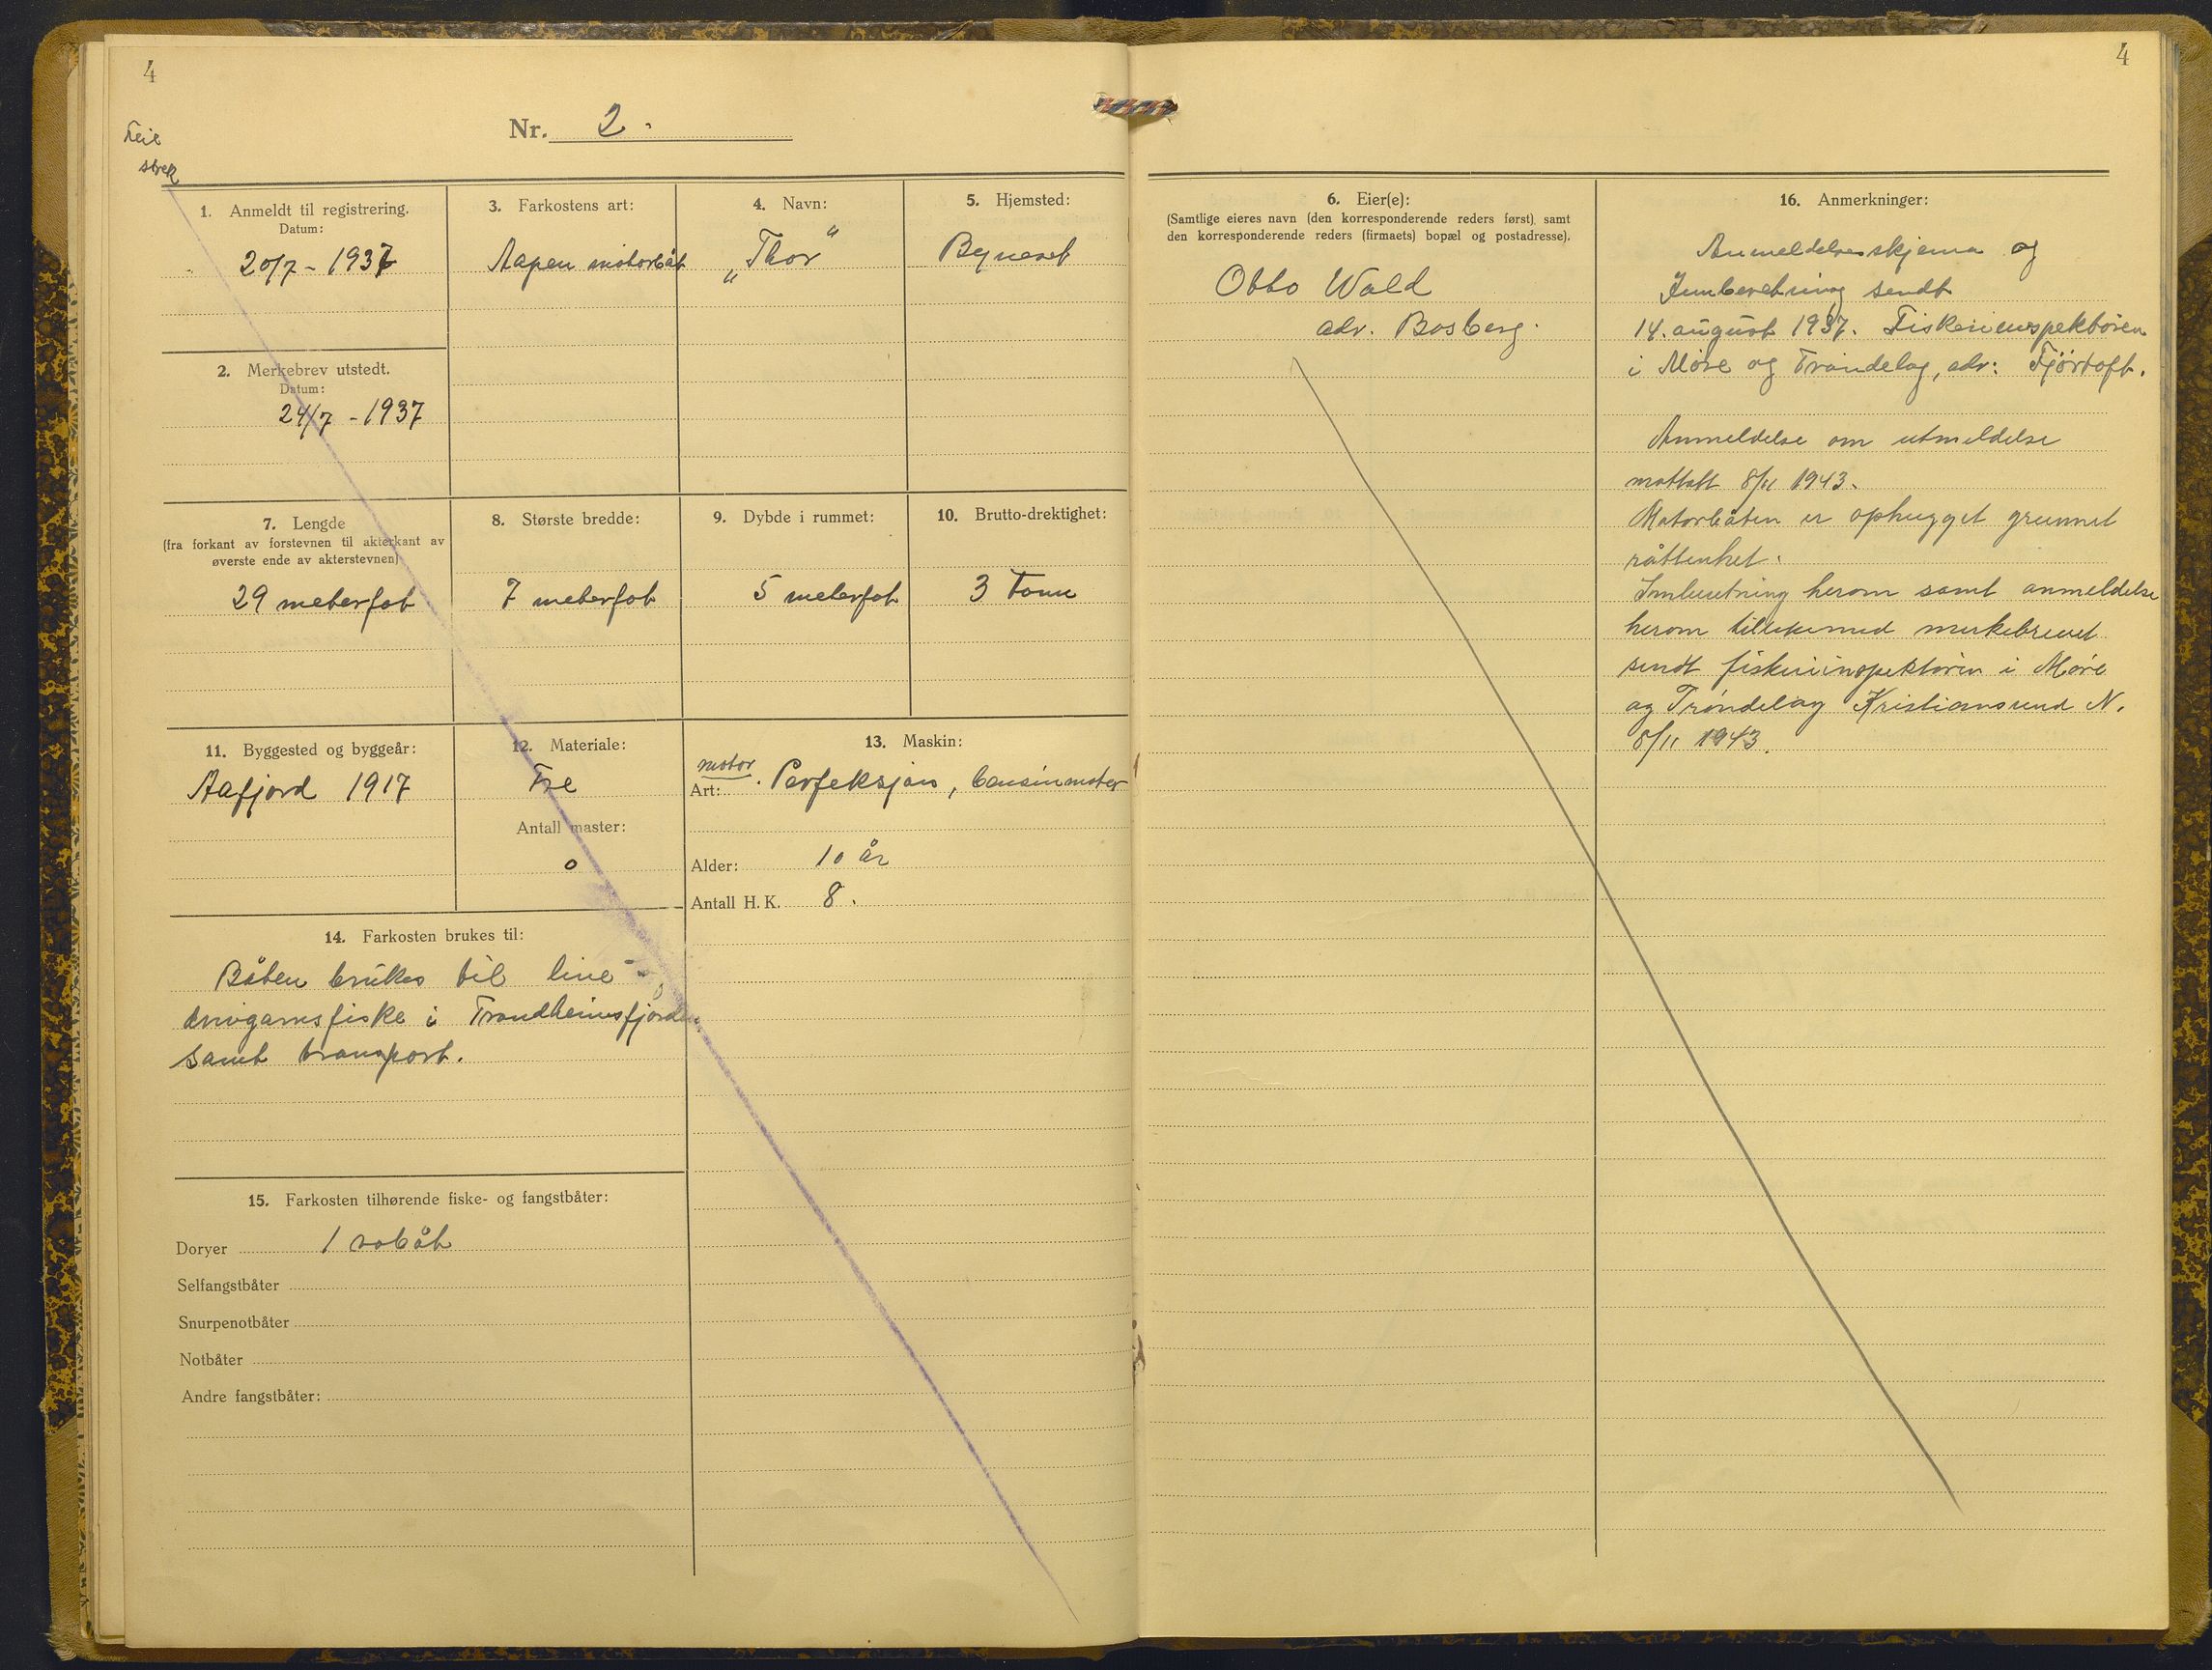 4
Feil
strek
Nr. 2.
1. Anmeldt til registrering.
Datum:
20/7 - 1937
2. Merkebrev utstedt.
Datum:
24/7 - 1937
3. Farkostens art:
Aapen motorbåt
4. Navn:
„Thor"
5. Hjemsted:
Byneset
7. Lengde
(fra forkant av forstevnen til akterkant av
øverste ende av akterstevnen)
29 meterfot
8. Største bredde:
7 meterfot
9. Dybde i rummet:
5 meterfot
10. Brutto-drektighet:
3 tonn
11. Byggested og byggeår:
Aafjord 1917
12. Materiale:
Tre
Antall master:
0
13. Maskin:
motor
Art: Perfeksjon, bensinmotor
Alder: 10 år
Antall H.K. 8.
14. Farkosten brukes til:
Båten brukes til line-
drivgarnsfiske i Trondheimsfjorden
samt transport.
15. Farkosten tilhørende fiske- og fangstbåter:
Doryer 1 robåt
Selfangstbåter
Snurpenotbåter
Notbåter
Andre fangstbåter:
4
6. Eier(e):
(Samtlige eieres navn (den korresponderende reders først), samt
den korresponderende reders (firmaets) bopæl og postadresse).
Otto Wald
adr. Bosberg.
16. Anmerkninger:
Anmeldelsesskjema og
Innberetning sendt
14. august 1937. Fiskeriinspektøren
i Møre og Trøndelag, adr: Fjørtoft.
Anmeldelse om utmeldelse
mottatt 8/11 1943.
Motorbåten er ophugget grunnet
råttenhet.
Innberetning herom samt anmeldelse
herom tillikemed merkebrevet
sendt fiskeriinspektøren i Møre
og Trøndelag Kristiansund N.
8/11 1943.